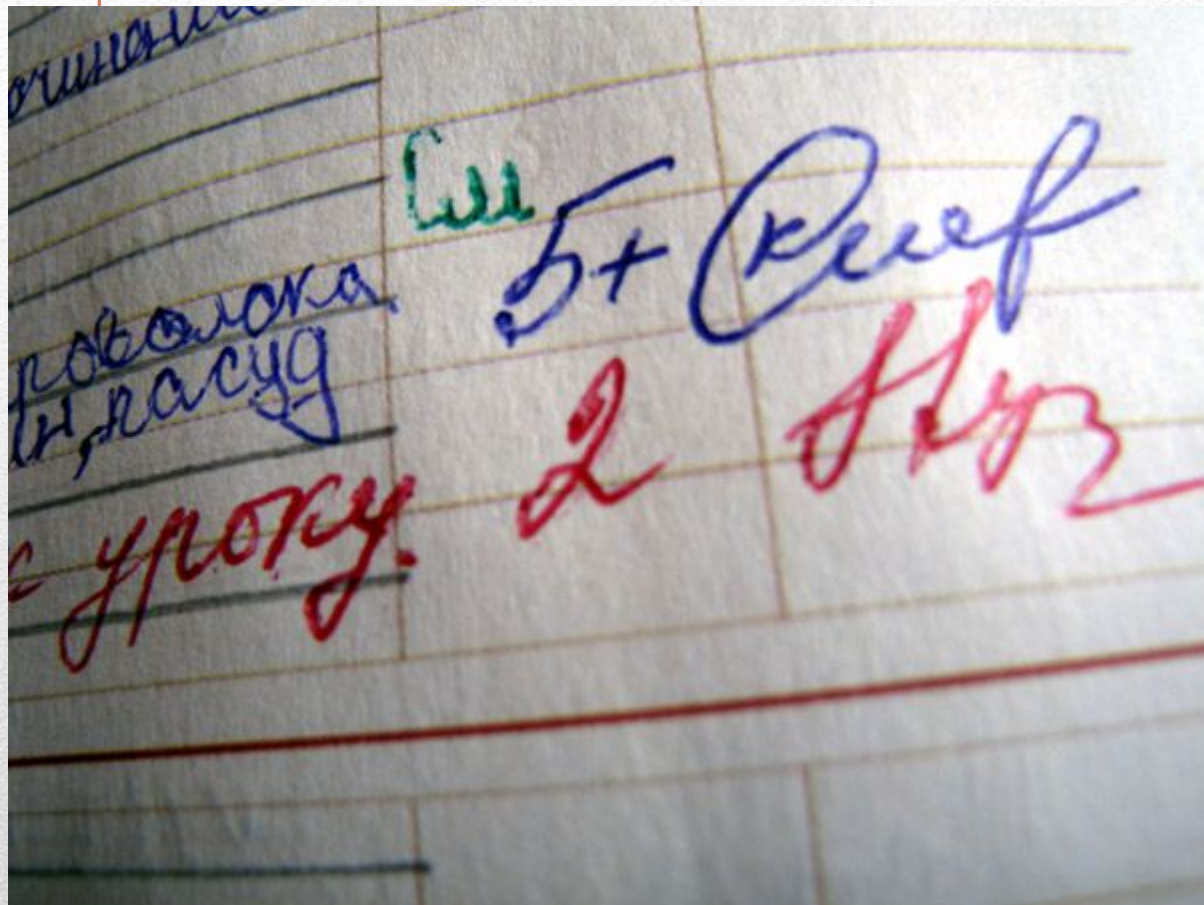 очинени
См
роволока 5+
н, пасуд
к уроку. 2